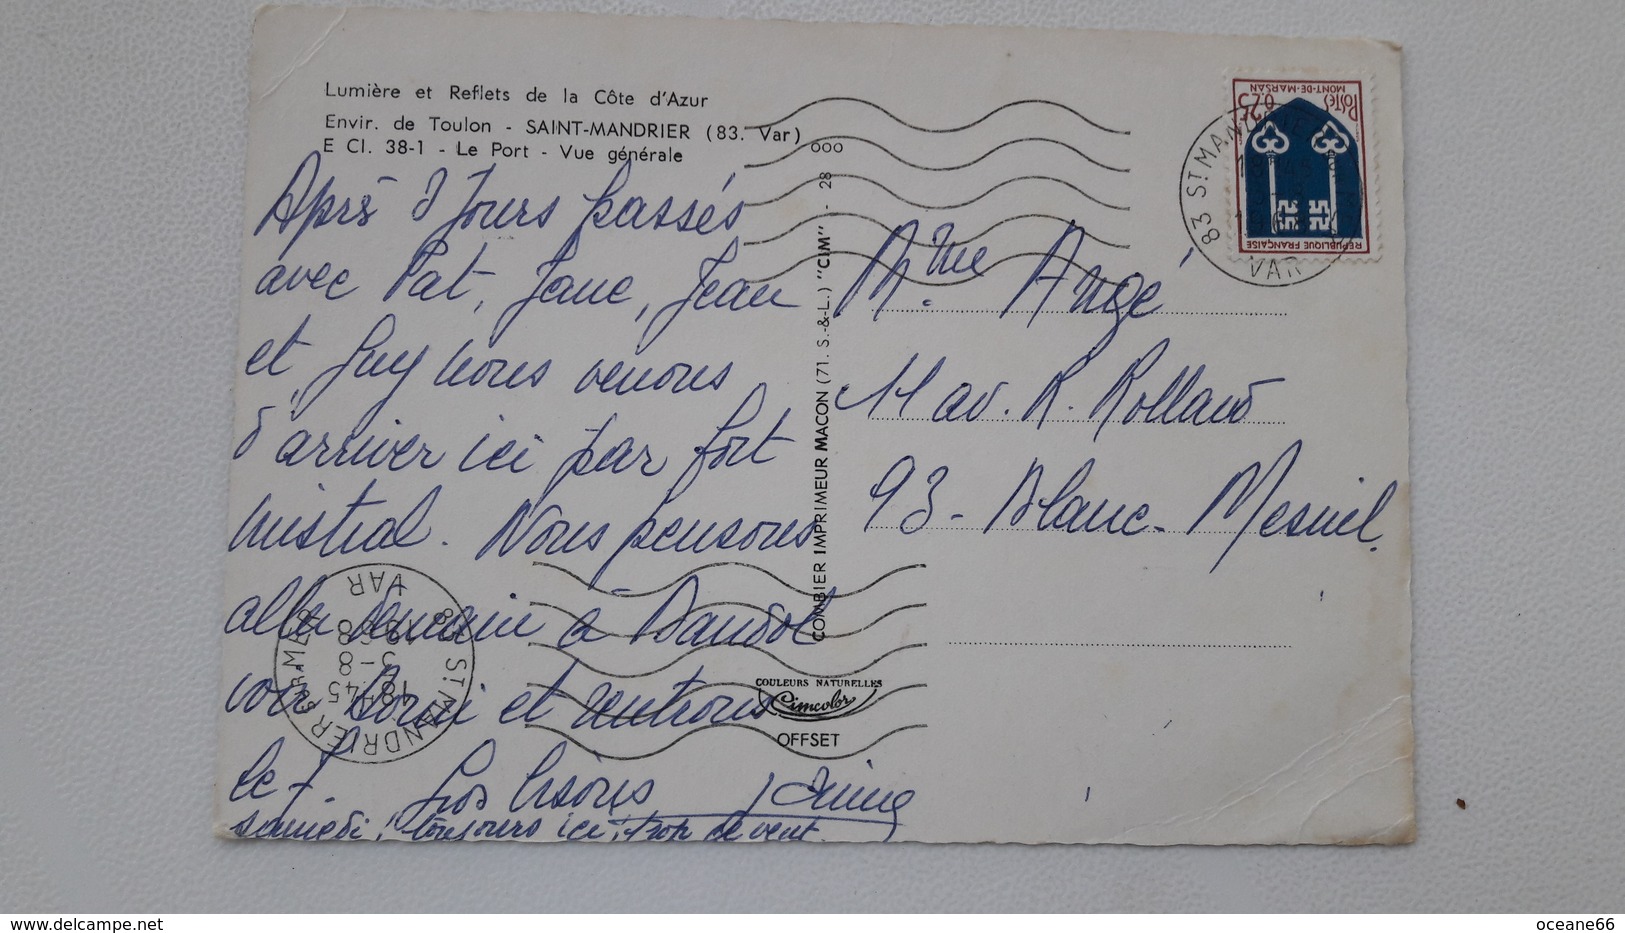 Lumière et Reflets de la Côte d'Azur
Envir. de Toulon - SAINT-MANDRIER (83. Var)
E CI. 38-1 - Le Port - Vue générale
Après 8 jours passés
avec Pat, Jane, Jean
et Guy nous venons
d'arriver ici par fort
mistral. Nous pensons
aller demain à Bandol
voir et rentrons
le 7. Gros bisous
samedi! toujours ici, trop de vent.
COMBIER IMPRIMEUR MACON (71. S.-&-L.) "CIM" - 28
ooo
COULEURS NATURELLES
Cimcolor
OFFSET
POSTES 0,25
MONT-DE-MARSAN
REPUBLIQUE FRANÇAISE
83 ST MANDRIE
VAR
83 ST MANDRIER
18H45
5-8
VAR
Mme Angé
11 av. R. Rolland
93 - Blanc-Mesnil.
oceane66